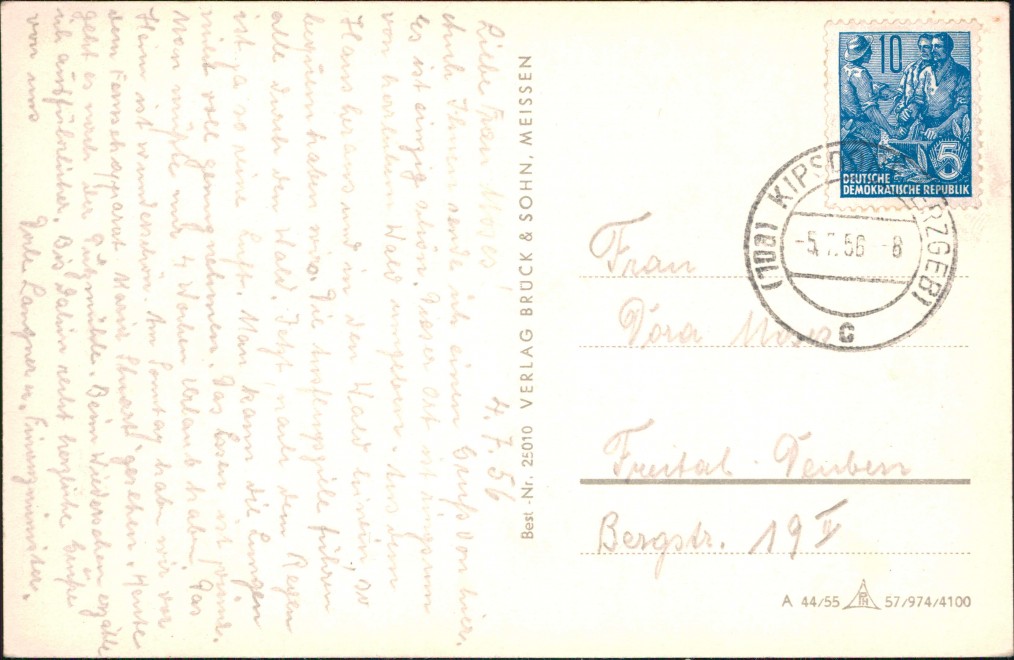 4.7.56
Liebe Frau Moses!
Auch Ihnen sende ich einen Gruß von hier.
Es ist einzig schön. Dieser Ort ist ringsum
von herrlichem Wald umgeben. Aus dem
Haus heraus und in den Wald hinein, so
bequem haben wir's. Die Ausflugsziele führen
alle durch den Wald. Jetzt, nach dem Regen
ist ja so eine Luft. Man kann die Lungen
nicht voll genug nehmen. Das Essen ist prima.
Man müßte nur 4 Wochen Urlaub haben. Das
Heim ist wunderschön. Am Sonntag haben wir vor
dem Fernsehapparat Maria Stuart gesehen. Heute
geht es nach der Putzmühle. Beim Wiedersehen erzähle
ich ausführlicher. Bis dahin recht herzliche Grüße
von uns
Langner u.
Best.-Nr. 25010 VERLAG BRÜCK & SOHN, MEISSEN
10
5
DEUTSCHE
DEMOKRATISCHE REPUBLIK
(10b) KIPSDORF (ERZGEB)
-5.7.56 -8
c
Frau
Dora Moses
Freital-Deuben
Bergstr. 19 II
A 44/55 57/974/4100